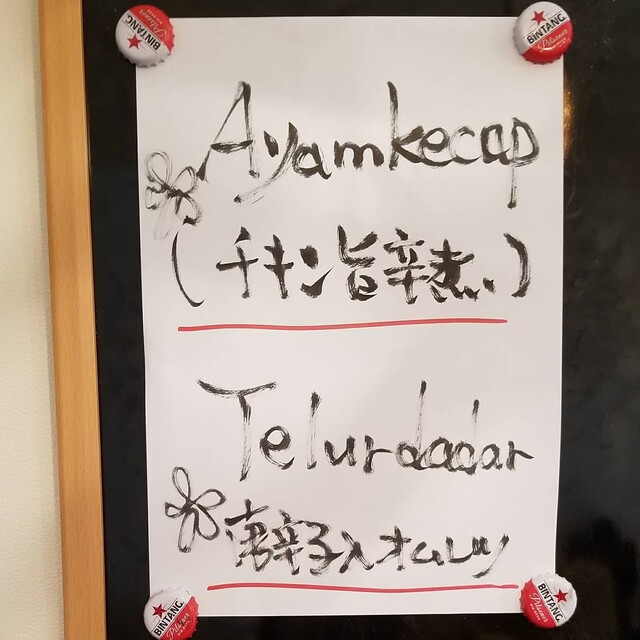 BINTANG Pilsener
BINTANG Pilsener
Ayam kecap
(チキン旨辛煮い)
Telur dadar
唐辛子入オムレツ
BINTANG Pilsener
BINTANG Pilsener